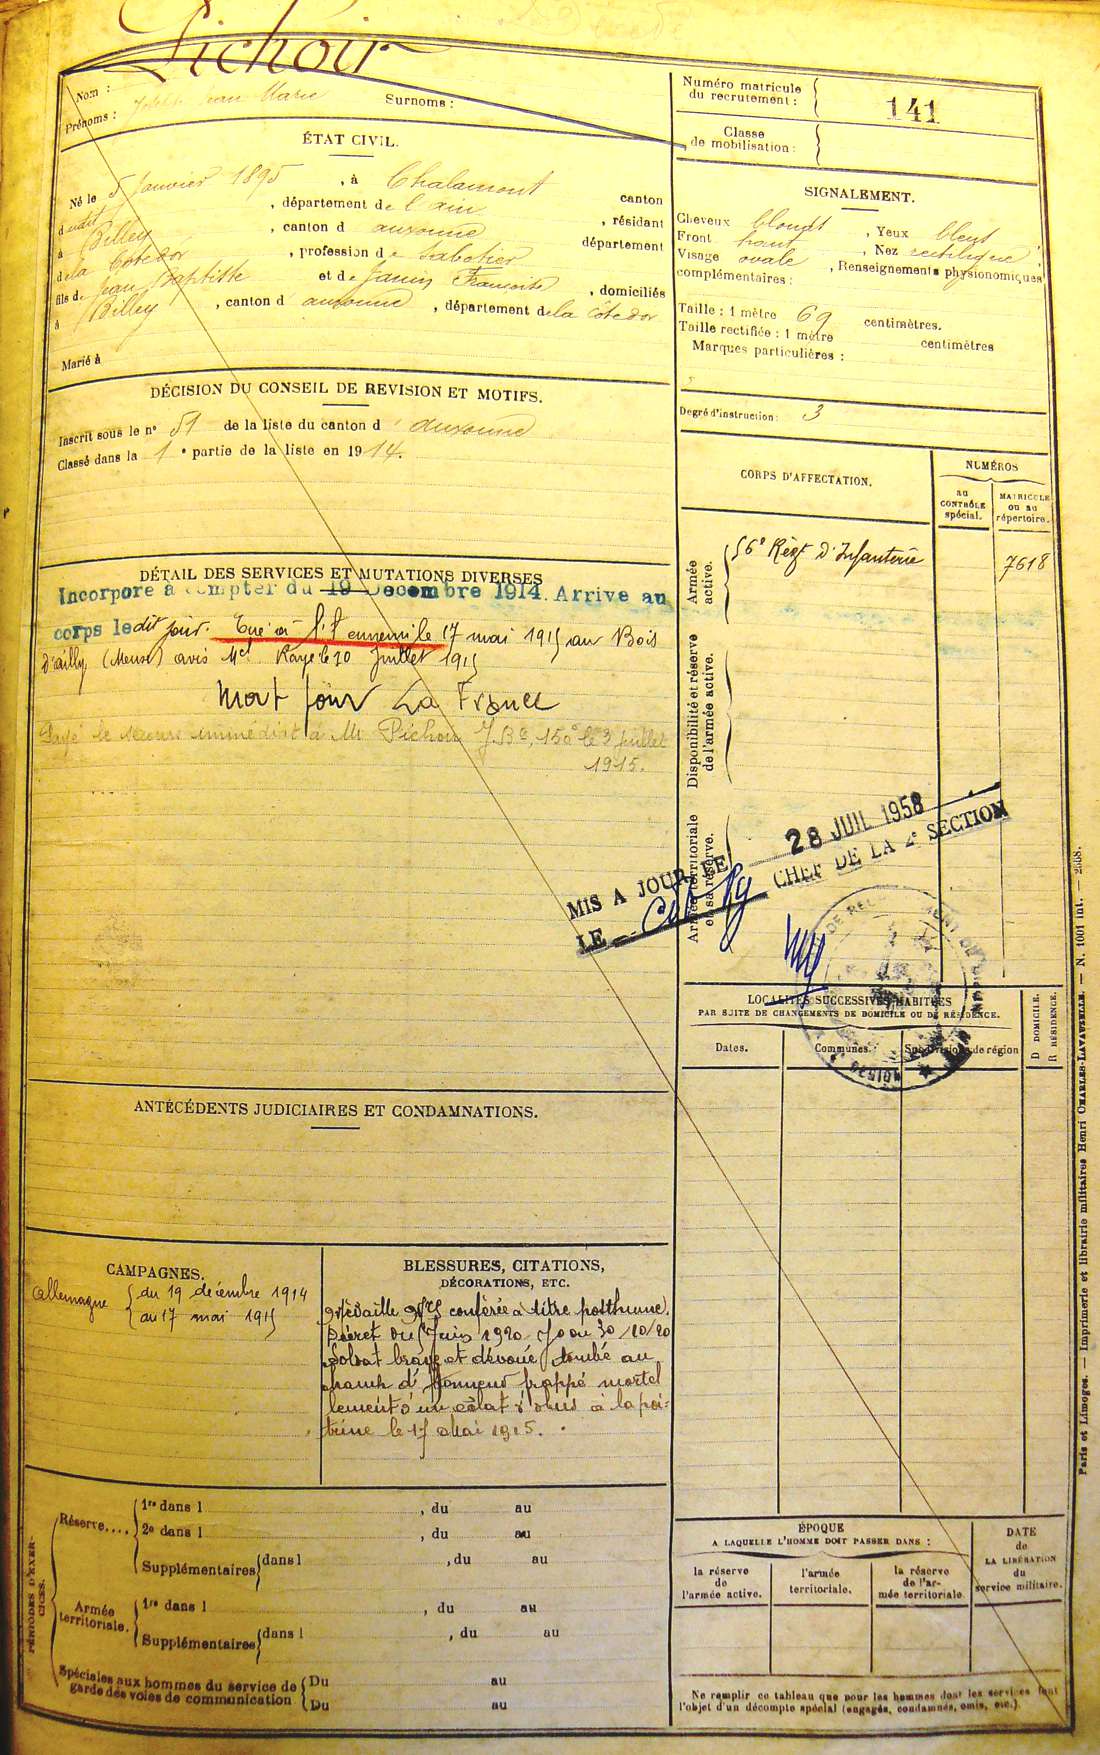 Pichoir
Nom :
Prénoms : Jean Marie Surnoms :
Numéro matricule
du recrutement :
141
Classe
de mobilisation :
ÉTAT CIVIL.
Né le 5 Janvier 1895, à Chalamont canton
dudit, département de l'ain, résidant
à Billey, canton d auxonne département
de la Cotedor, profession de Sabotier
fils de Jean Baptiste et de Janin Françoise, domiciliés
à Billey, canton d auxonne, département de la Côte dor
Marié à
SIGNALEMENT.
Cheveux blonds, Yeux bleus
Front haut, Nez rectiligne
Visage ovale, Renseignements physionomiques
complémentaires :
Taille : 1 mètre 69 centimètres.
Taille rectifiée : 1 mètre centimètres
Marques particulières :
Degré d'instruction : 3
DÉCISION DU CONSEIL DE REVISION ET MOTIFS.
Inscrit sous le nº 51 de la liste du canton d auxonne
Classé dans la 1e partie de la liste en 1914.
CORPS D'AFFECTATION.
NUMÉROS
au
CONTRÔLE
spécial.
MATRICULE
ou au
répertoire.
Armée
active.
56e Régt d'Infanterie
7618
Disponibilité et réserve
de l'armée active.
Armée territoriale
et sa réserve.
DÉTAIL DES SERVICES ET MUTATIONS DIVERSES
Incorporé à compter du 19 Decembre 1914. Arrivé au
corps le dit jour. Tué à l'ennemi le 17 mai 1915 au Bois
d'ailly (Meuse) avis Mel 20 Juillet 1915
Mort pour La France
Payé le secours immédiat à Mr Pichoir J. Bte, 150f le 3 juillet
1915.
MIS A JOUR LE 28 JUIL 1958
LE CHEF DE LA 2e SECTION
LOCALITÉS SUCCESSIVES HABITÉES
PAR SUITE DE CHANGEMENTS DE DOMICILE OU DE RÉSIDENCE.
Dates.
Communes.
Subdivisions de région
D DOMICILE.
R RÉSIDENCE.
ANTÉCÉDENTS JUDICIAIRES ET CONDAMNATIONS.
CAMPAGNES.
Allemagne du 19 décembre 1914
au 17 mai 1915
BLESSURES, CITATIONS,
DÉCORATIONS, ETC.
Médaille Mre conférée à titre posthume.
Décret du Juin 1920 JO du 30/10/20
Soldat brave et dévoué tombé au
champ d'Honneur frappé mortel
lement d'un eclat d'obus à la poi-
trine le 17 Mai 1915.
PÉRIODES D'EXER-
CICES.
Réserve....
1re dans l , du au
2e dans l , du au
Supplémentaires dans l , du au
Armée
territoriale.
1re dans l , du au
Supplémentaires dans l , du au
Spéciales aux hommes du service de
garde des voies de communication
Du au
Du au
ÉPOQUE
A LAQUELLE L'HOMME DOIT PASSER DANS :
la réserve
de
l'armée active.
l'armée
territoriale.
la réserve
de l'ar-
mée territoriale.
DATE
de
LA LIBÉRATION
du
service militaire.
Ne remplir ce tableau que pour les hommes dont les services font
l'objet d'un décompte spécial (engagés, condamnés, omis, etc.).
Paris et Limoges. — Imprimerie et librairie militaires Henri CHARLES-LAVAUZELLE. — N. 1001 int. — 2558.